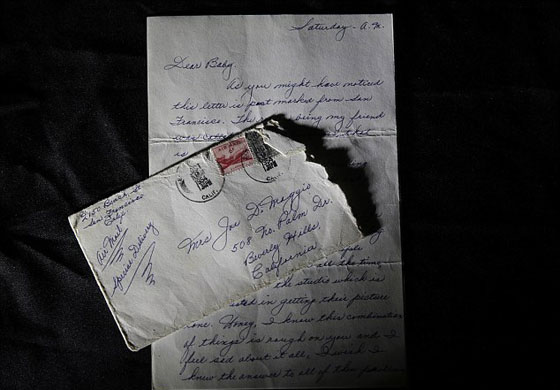 Saturday - A.M.
Dear Baby,
As you might have noticed
this letter is post marked from San
Francisco. The being my friend
was
is
AIR MAIL
6¢
CALIF.
CALIF.
2150 Beach St
San Francisco
Calif.
Air Mail
Special Delivery
Mrs Joe D. Maggio
508 No. Palm Dr.
Beverly Hills,
California
all the time,
the studio which is
in getting their picture
done. Honey, I know this combination
of things is rough on you and I
feel sad about it all. I wish I
knew the answer to all of the